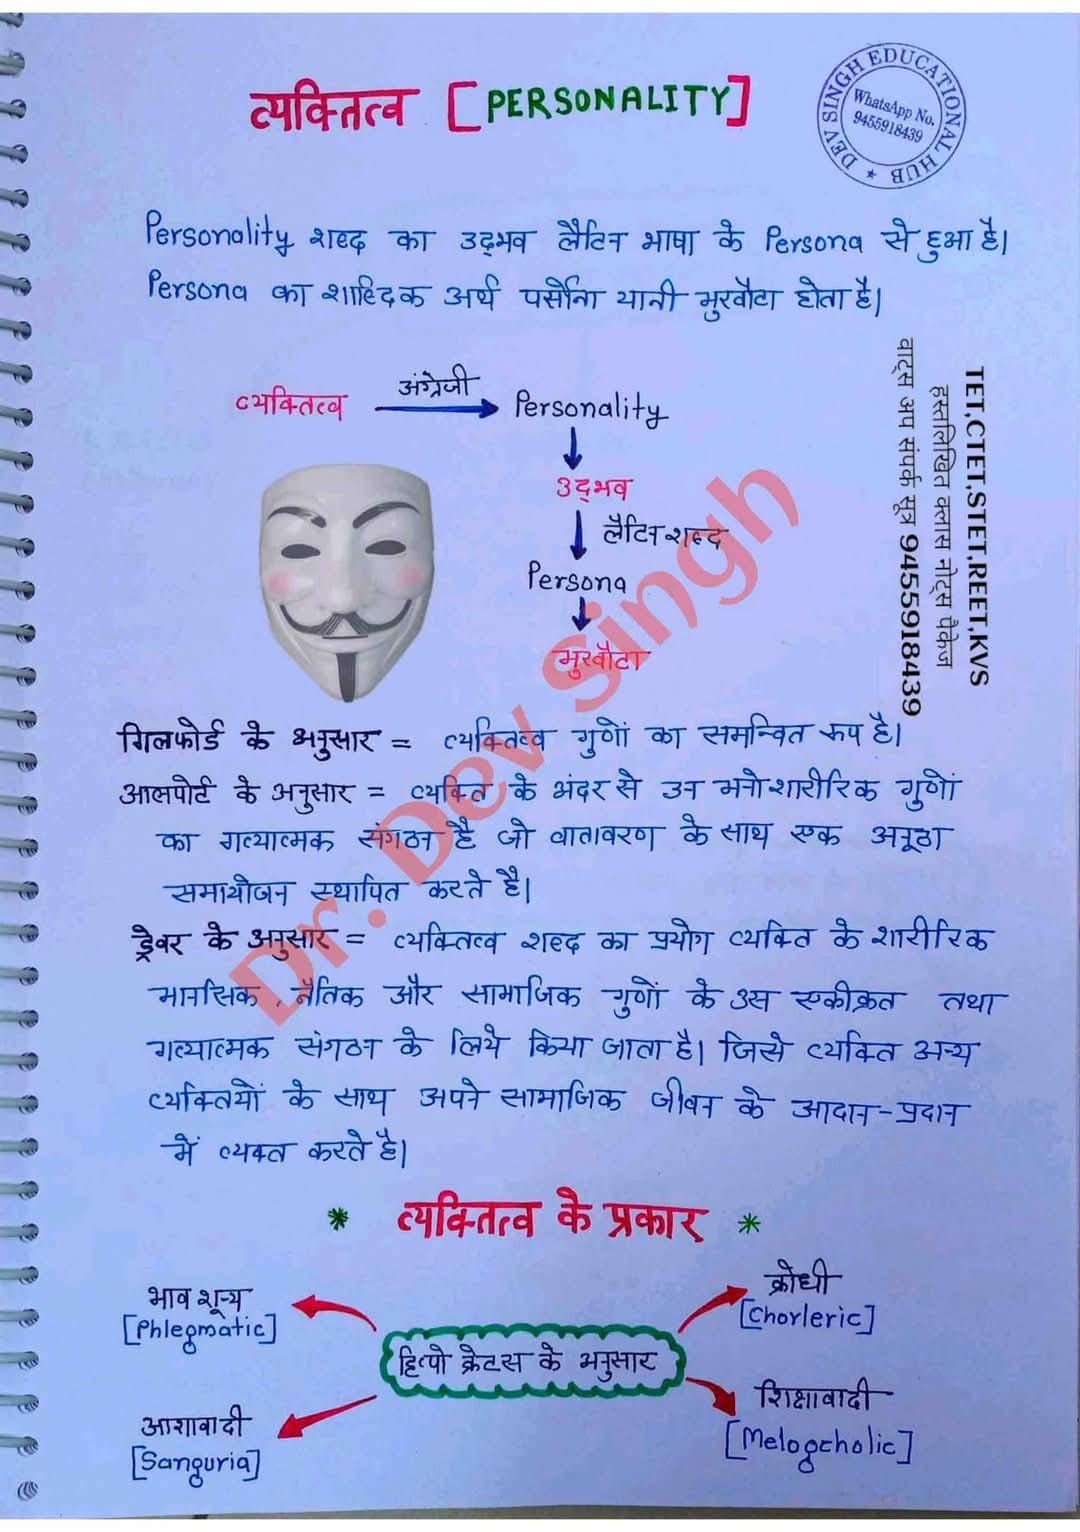 व्यक्तित्व [PERSONALITY]
DEV SINGH EDUCATIONAL HUB
WhatsApp No.
9455918439
Personality शब्द का उद्भव लैटिन भाषा के Persona से हुआ है।
Persona का शाब्दिक अर्थ पर्सोना यानी मुखौटा होता है।
व्यक्तित्व अंग्रेजी Personality
उद्भव
लैटिन शब्द
Persona
मुखौटा
TET,CTET,STET,REET,KVS
हस्तलिखित क्लास नोट्स पैकेज
वाट्स अप संपर्क सूत्र 9455918439
Dr. Dev Singh
गिलफोर्ड के अनुसार = व्यक्तित्व गुणों का समन्वित रूप है।
आलपोर्ट के अनुसार = व्यक्ति के अंदर से उन मनोशारीरिक गुणों
का गत्यात्मक संगठन है जो वातावरण के साथ एक अनूठा
समायोजन स्थापित करते है।
ड्रेवर के अनुसार = व्यक्तित्व शब्द का प्रयोग व्यक्ति के शारीरिक
मानसिक, नैतिक और सामाजिक गुणों के उस एकीक्रत तथा
गत्यात्मक संगठन के लिये किया जाता है। जिसे व्यक्ति अन्य
व्यक्तियों के साथ अपने सामाजिक जीवन के आदान-प्रदान
में व्यक्त करते है।
* व्यक्तित्व के प्रकार *
भाव शून्य
[Phlegmatic]
क्रोधी
[Chorleric]
हिप्पो क्रेटस के अनुसार
आशावादी
[Sanguria]
शिक्षावादी
[Melogcholic]